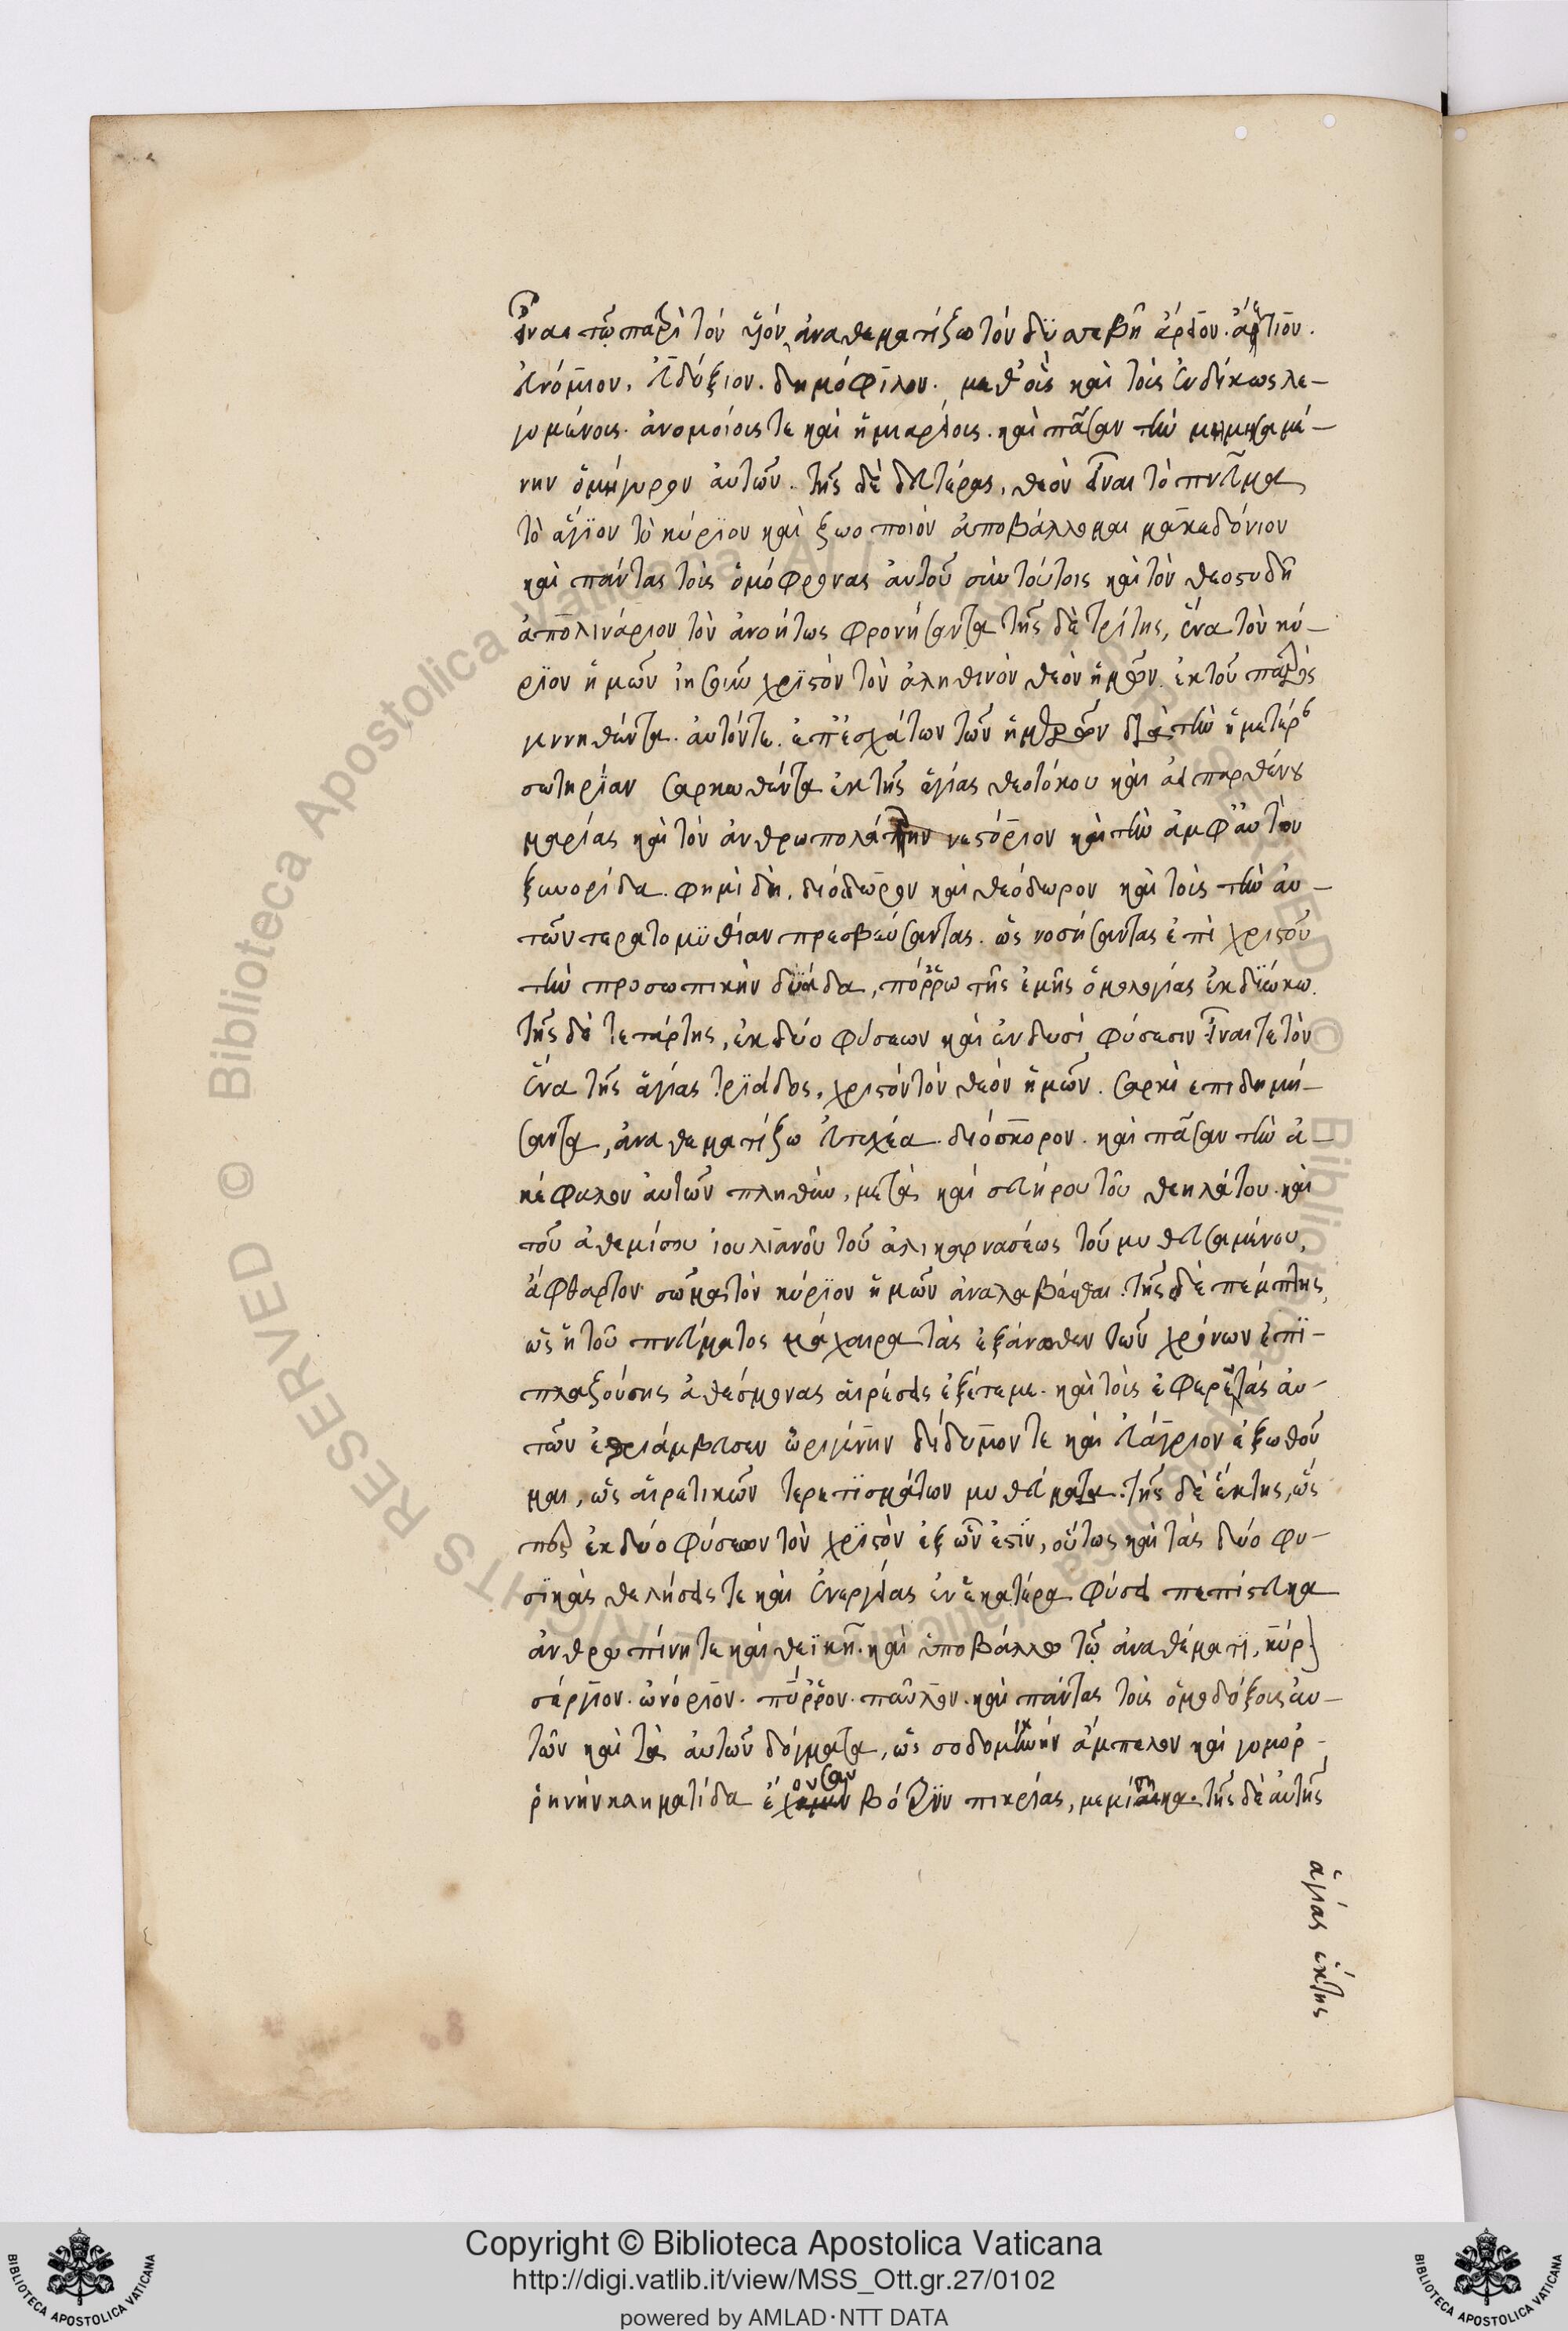 εἶναι τῷ πατρὶ τὸν υἱόν, ἀναθεματίζω τὸν δυσσεβῆ ἄρειον. ἀέτιον.
εὐνόμιον. εὐδόξιον. δημόφιλον. μεθ' οἷς καὶ τοῖς ἐνδίκως λε-
γομένοις ἀνομοίοις τε καὶ ἡμιαρείοις. καὶ πᾶσαν τὴν
νην ὁμήγυρον αὐτῶν. τῆς δὲ δευτέρας, θεὸν εἶναι τὸ πνεῦμα
τὸ ἅγϊον τὸ κύρϊον καὶ ζωοποιόν ἀποβάλλομαι μακεδόνιον
καὶ πάντας τοὺς ὁμόφρονας αὐτοῦ σὺν τούτοις καὶ τὸν θεοστυγῆ
ἀπολινάριον τὸν ἀνοήτως φρονήσαντα τῆς δὲ τρίτης, ἕνα τὸν κύ-
ρϊον ἡμῶν ἰησοῦν χρϊστὸν τὸν ἀληθινὸν θεὸν ἡμῶν. ἐκ τοῦ πατρὸς
γεννηθέντα. αὐτόν τε. ἐπ' ἐσχάτων τῶν ἡμερῶν διὰ τὴν ἡμετέρα
σωτηρίαν σαρκωθέντα ἐκ τῆς ἁγίας θεοτόκου καὶ ἀεὶ παρθένου
μαρίας καὶ τὸν ἀνθρωπολάτρην νεστόριον καὶ τὴν ἀμφ' αὐτὸν
ξυνορίδα. φημὶ δὴ. διόδωρον καὶ θεόδωρον καὶ τοὺς τὴν αὐ-
τῶν τερατομϋθίαν πρεσβεύσαντας. ὡς νοσήσαντας ἐπὶ χριστοῦ
τὴν προσωπικὴν δυάδα, πόρρω τῆς ἐμῆς ὁμολογίας ἐκδϊώκω.
τῆς δὲ τετάρτης, ἐκ δύο φύσεων καὶ ἐν δυσὶ φύσεσιν εἶναί τε τὸν
ἕνα τῆς ἁγίας τρϊάδος, χριστὸν τὸν θεὸν ἡμῶν. σαρκὶ επιδημή-
σαντα, ἀναθεματίζω εὐτυχέα. διόσκορον. καὶ πᾶσαν τὴν ἀ-
κέφαλον αὐτῶν πληθὺν, μετὰ καὶ σευήρου τοῦ θεηλάτου. καὶ
τοῦ ἀθεμίτου ἰουλιανοῦ τοῦ ἁλικαρνασέως τοῦ μυθευσαμένου,
ἄφθαρτον σῶμα τὸν κύρϊον ἡμῶν ἀναλαβέσθαι. τῆς δὲ πέμπτης,
ὡς ἡ τοῦ πνεύματος μάχαιρα τὰς ἐξάνωθεν τῶν χρόνων ἐπϊ-
πλαζούσης ἀθέσμονας αἱρέσεις ἐξέτεμε. καὶ τοὺς ἐφευρετὰς αὐ-
τῶν ἐθριάμβευσεν ὠριγένην δίδυμον τε καὶ εὐάγριον ἐξωθοῦ
μαι, ὡς αἱρετικῶν τερετϊσμάτων μυθεύματα. τῆς δὲ ἕκτης, ὡς
περ ἐκ δύο φύσεων τὸν χρϊστὸν ἐξ ὧν ἐστϊν, οὕτως καὶ τὰς δύο φυ-
σϊκὰς θελήσεις τε καὶ ἐνεργείας ἐν ἑκατέρα φύσει πεπίστευκα
ἀνθρωπίνη τε καὶ θεϊκῆ. καὶ ὑποβάλλω τῷ ἀναθέματϊ, κῦρ
σέργϊον. ὁνόριον. πύρρον. παῦλον. καὶ πάντας τοὺς ὁμοδόξοις αὐ-
τῶν καὶ τὰ αὐτῶν δόγματα, ὡς σοδομϊκὴν ἄμπελον καὶ γομορ-
ρηνὴν κληματίδα ἔχουσαν βότρυν πικρίας, μεμίσηκα. τῆς δὲ αὐτῆς
ἁγίας ἑκτης
Copyright © Biblioteca Apostolica Vaticana
http://digi.vatlib.it/view/MSS_Ott.gr.27/0102
powered by AMLAD·NTT DATA